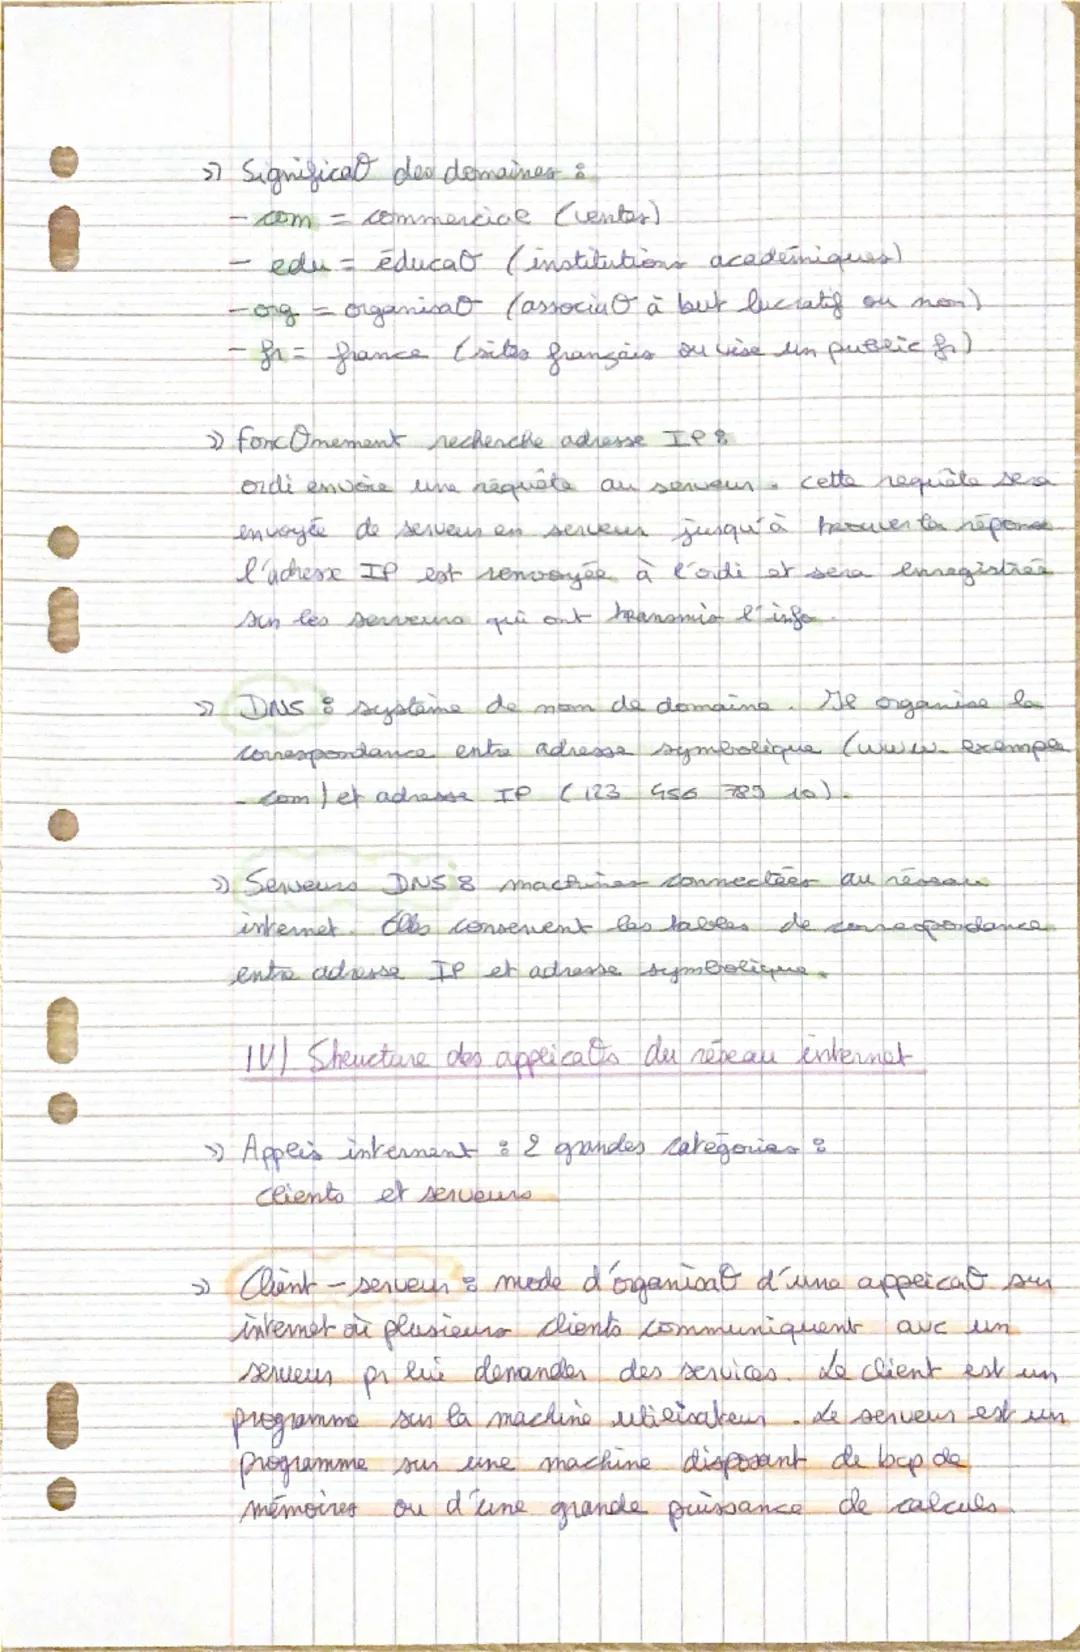 >> Significatθ des domaines :
- com = commerciale (ventes)
- edu = éducatθ (institutions académiques)
- org = organisatθ (associatθ à but lucratif ou non)
- fr = france (sites français ou vise un public fr)
>> foncθnement recherche adresse IP :
ordi envoie une requête au serveur. cette requête sera
envoyée de serveur en serveur jusqu'à trouver la réponse
l'adresse IP est renvoyée à l'ordi et sera enregistrée
sur les serveurs qui ont transmis l'info.
>> DNS : système de nom de domaine. Il organise la
correspondance entre adresse symbolique (www. exemple
.com) et adresse IP (123 456 789 10).
>> Serveurs DNS : machines connectées au réseau
internet. Elles conservent les tables de correspondance
entre adresse IP et adresse symbolique.
IV) Structure des applicatθs du réseau internet
>> Applis internent : 2 grandes catégories :
clients et serveurs
>> Client - serveur : mode d'organisatθ d'une applicatθ sur
internet où plusieurs clients communiquent avc un
serveur pr lui demander des services. Le client est un
programme sur la machine utilisateur. Le serveur est un
programme sur une machine disposant de bcp de
mémoires ou d'une grande puissance de calculs.